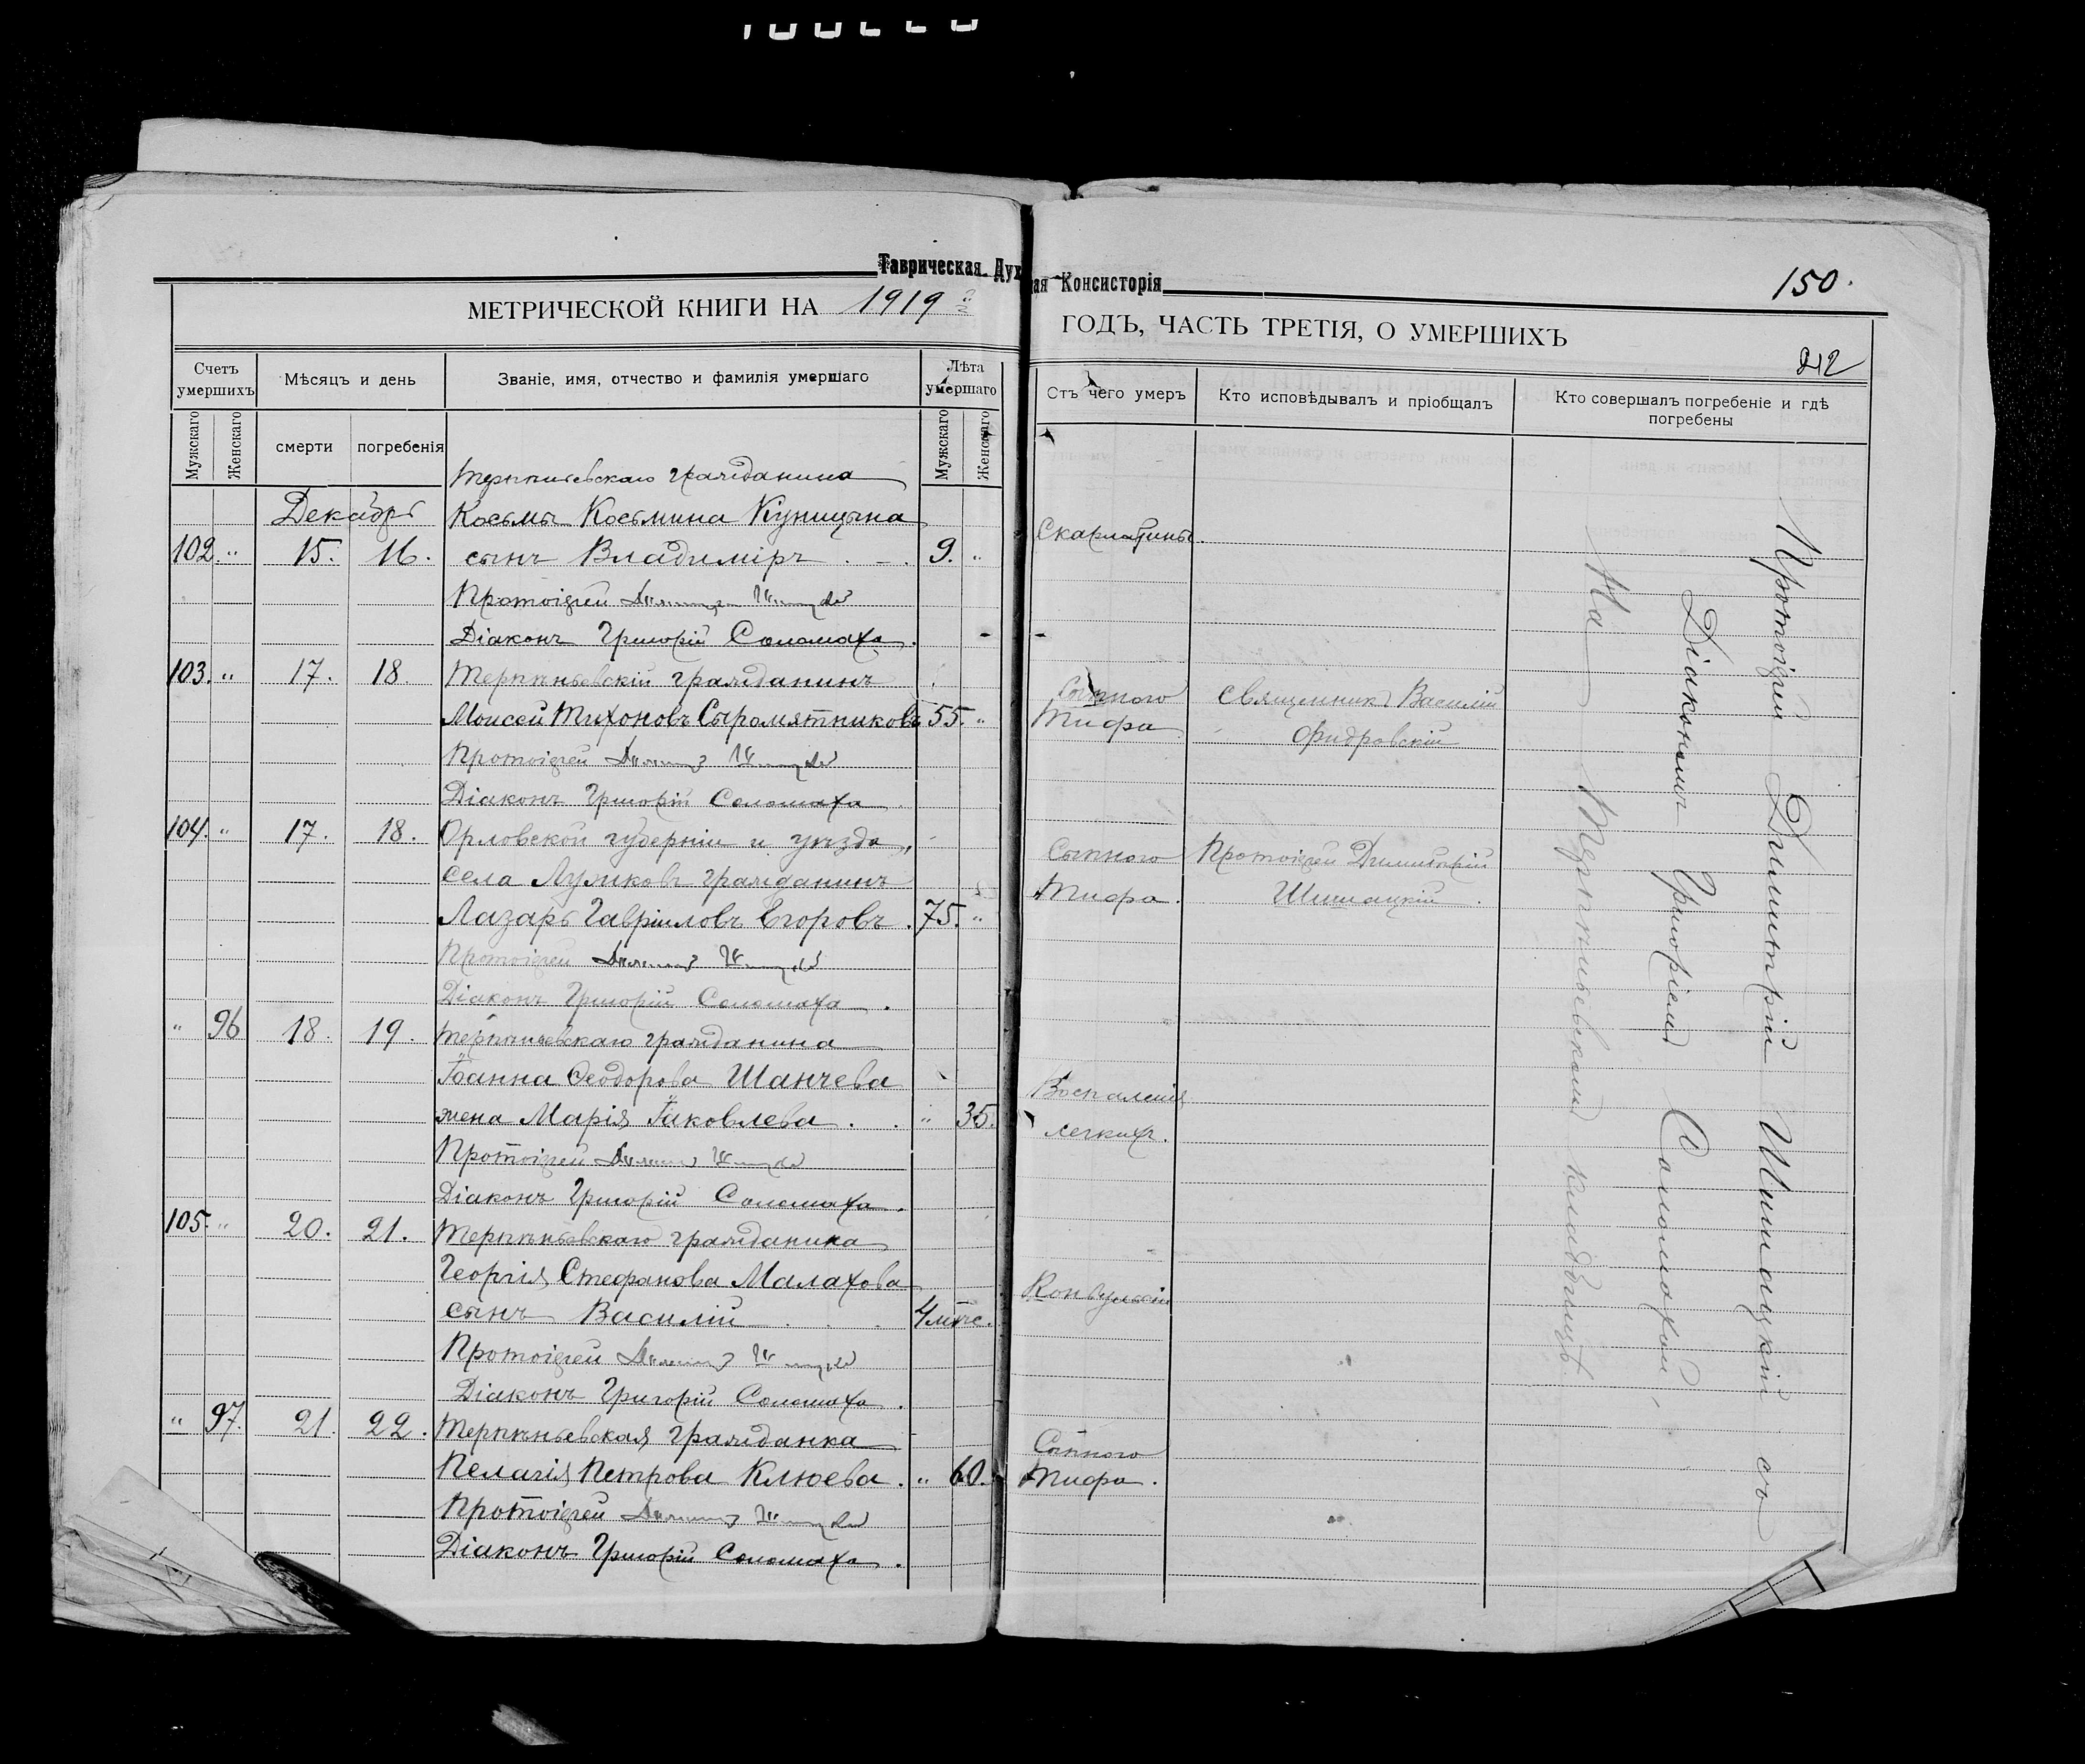 Таврическая Дух
ая Консисторія
150.
МЕТРИЧЕСКОЙ КНИГИ НА 1919
ГОДЪ, ЧАСТЬ ТРЕТІЯ, О УМЕРШИХЪ
212
Счетъ умершихъ
Мѣсяцъ и день
Званіе, имя, отчество и фамилія умершаго
Лѣта умершаго
Мужскаго
Женскаго
смерти
погребенія
Мужскаго
Женскаго
Терпѣньевскаго гражданина
Декабрь Косьмы Косьмина Куницына
102. " 15. 16. сынъ Владиміръ 9. "
Протоіерей
Діаконъ Григорій Соломаха.
103. " 17. 18. Терпѣньевскій гражданинъ
Моисей Тихоновъ Сыромятниковъ 55. "
Протоіерей
Діаконъ Григорій Соломаха
104. " 17. 18. Орловской губерніи и уѣзда,
села Лужковъ гражданинъ
Лазарь Гавріиловъ Егоровъ. 75. "
Протоіерей
Діаконъ Григорій Соломаха.
" 96 18. 19. Терпѣньевскаго гражданина
Іоанна Ѳеодорова Шанчева
жена Марія Іаковлева. " 35.
Протоіерей
Діаконъ Григорій Соломаха.
105. " 20. 21. Терпѣньевскаго гражданина
Георгія Стефанова Малахова
сынъ Василій 4 мѣс.
Протоіерей
Діаконъ Григорій Соломаха.
" 97. 21. 22. Терпѣньевская гражданка
Пелагія Петрова Клюева. " 60.
Протоіерей
Діаконъ Григорій Соломаха.
Отъ чего умеръ
Кто исповѣдывалъ и пріобщалъ
Кто совершалъ погребеніе и гдѣ
погребены
Скарлатины.
Сыпного
Тифа
Священникъ Василій
Сыпного
Тифа.
Протоіерей Димитрій
Шишацкій.
Воспаленія
легкихъ.
Конвульсіи
Сыпного
Тифа.
Протоіерей Димитрій Шишацкій съ
Діакономъ Григоріемъ Соломахой,
На Терпѣньевскомъ кладбищѣ.